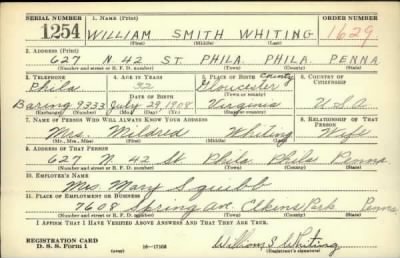 SERIAL NUMBER 1. NAME (Print) ORDER NUMBER
1254 WILLIAM SMITH WHITING 1629
(First) (Middle) (Last)
2. ADDRESS (Print)
627 N. 42 ST. PHILA. PHILA. PENNA
(Number and street or R. F. D. number) (Town) (County) (State)
3. TELEPHONE 4. AGE IN YEARS 5. PLACE OF BIRTH 6. COUNTRY OF CITIZENSHIP
Phila 32 Gloucester County
DATE OF BIRTH (Town or county)
Baring 9333 July 29, 1908 Virginia U.S.A.
(Exchange) (Number) (Mo.) (Day) (Yr.) (State or country)
7. NAME OF PERSON WHO WILL ALWAYS KNOW YOUR ADDRESS 8. RELATIONSHIP OF THAT PERSON
Mrs. Mildred Whiting Wife
(Mr., Mrs., Miss) (First) (Middle) (Last)
9. ADDRESS OF THAT PERSON
627 N 42 St Phila Phila Penna
(Number and street or R. F. D. number) (Town) (County) (State)
10. EMPLOYER'S NAME
Mrs. Mary Squibb
11. PLACE OF EMPLOYMENT OR BUSINESS
7608 Spring Av. Elkins Park Penna.
(Number and street or R. F. D. number) (Town) (County) (State)
I AFFIRM THAT I HAVE VERIFIED ABOVE ANSWERS AND THAT THEY ARE TRUE.
REGISTRATION CARD
D. S. S. Form 1 (over) 16-17105 William S Whiting
(Registrant's signature)